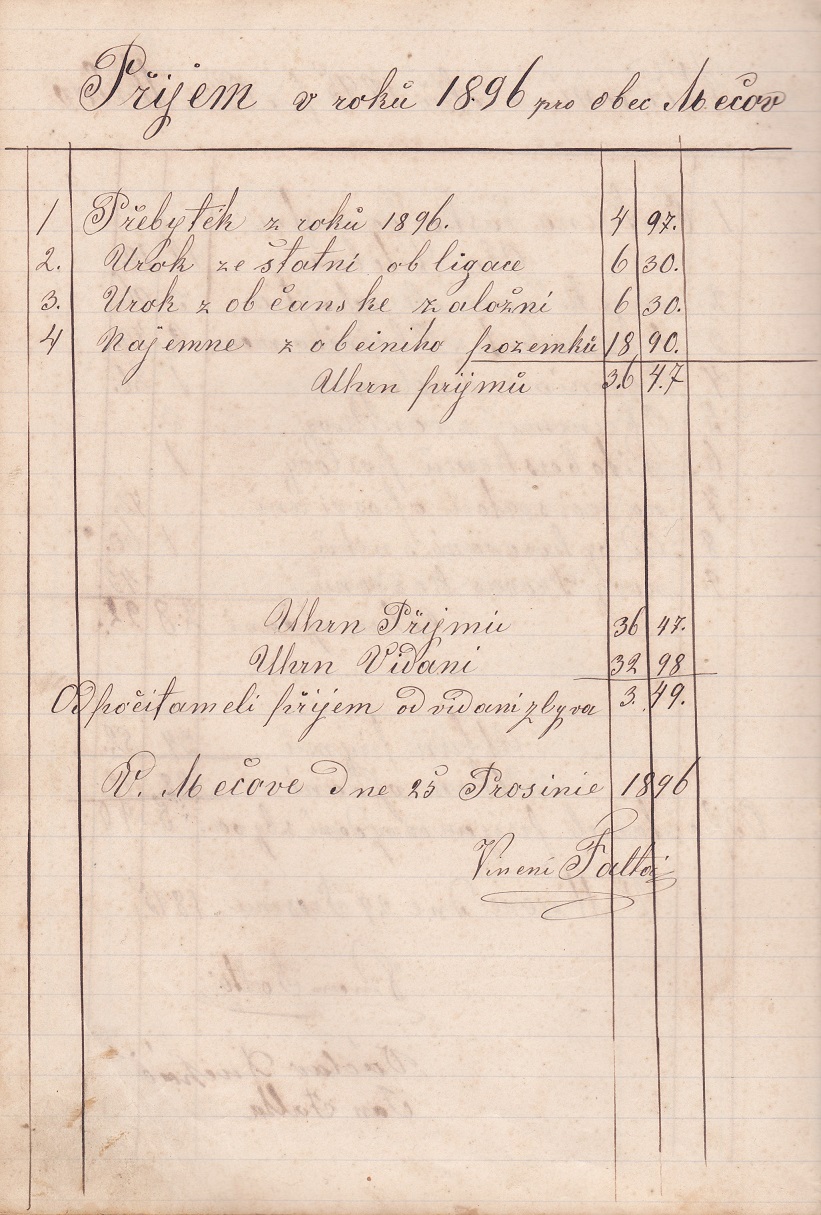 Přijem v roků 1896 pro obec Mečov
1 Přebyték z roků 1896. 4 97.
2. Urok ze štatni obligace 6 30.
3. Urok z občanske založni 6 30.
4 Najemne z obeiniho pozemků 18 90.
Uhrn prijmů 36 47
Uhrn Přijmů 36 47.
Uhrn Vidani 32 98
Odpočitameli přijem od vidani zbyva 3. 49.
V. Mečove Dne 25 Prosinie 1896